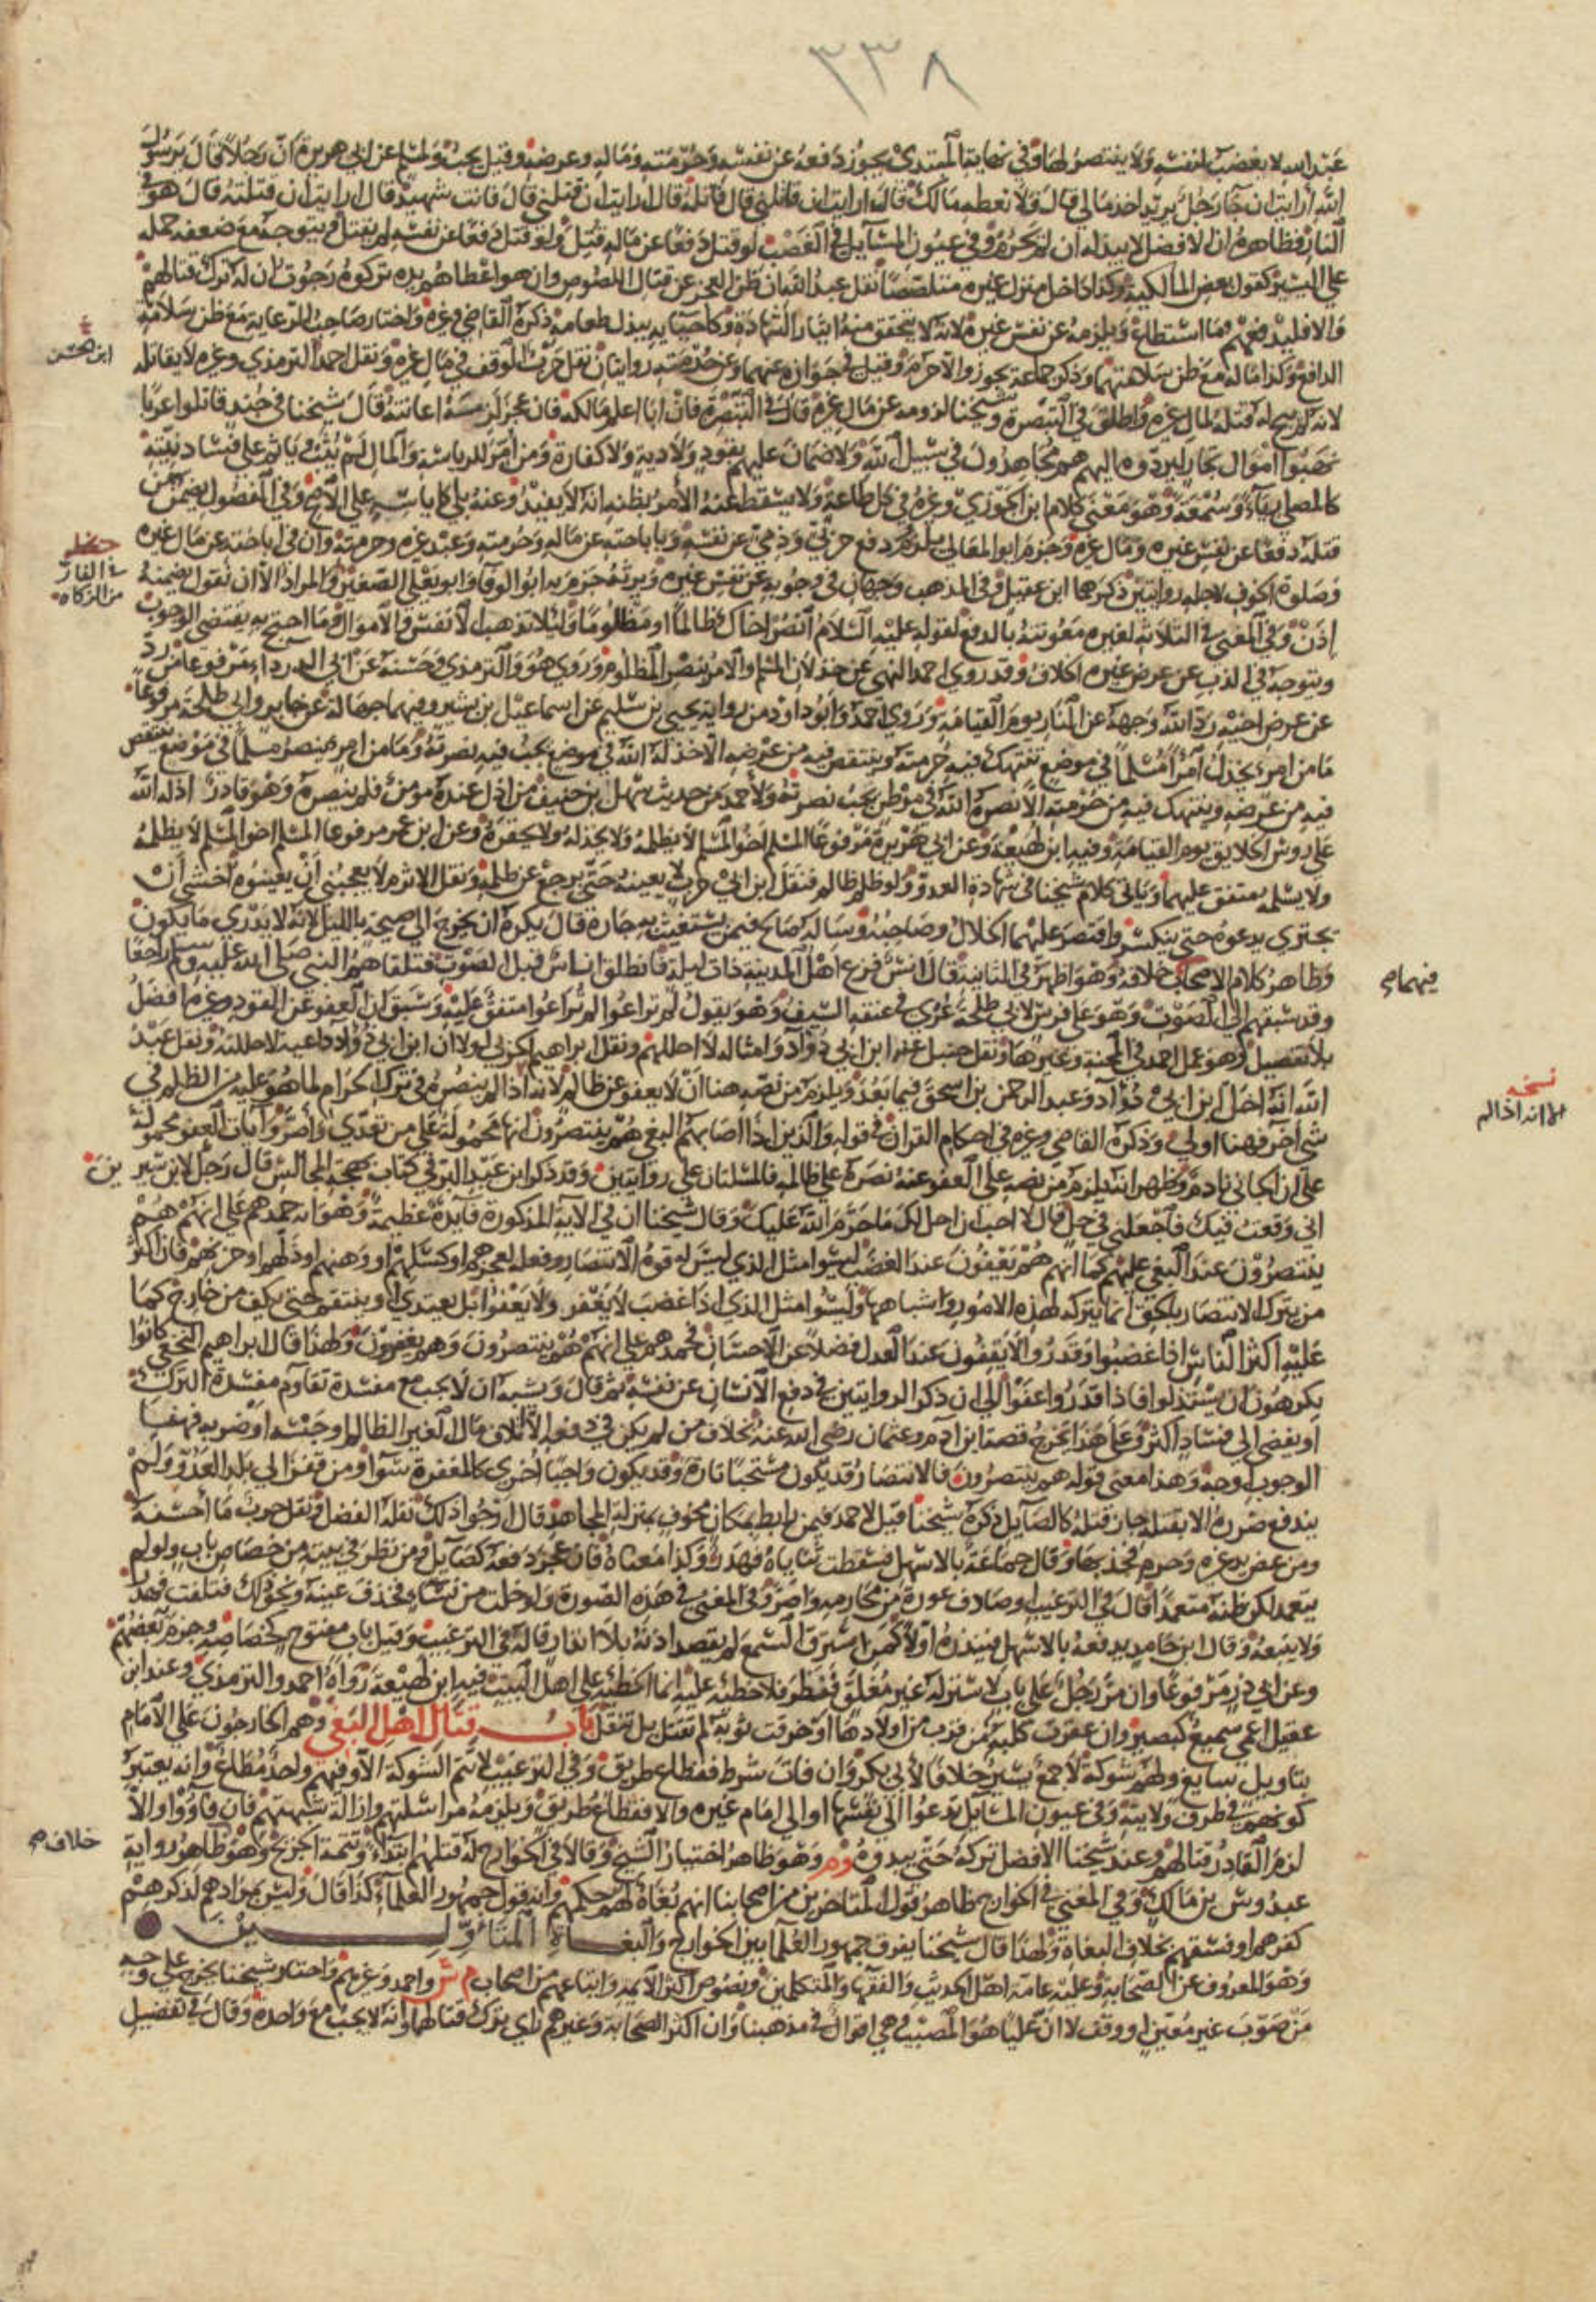 ٣٣٨
عبد الله لا يغضب لنفسه ولا ينتصر لها وفي نهاية المبتدي يجوز دفعه عن نفسه وحرمته وماله وعرضه وقيل يجب ولمسلم عن ابي هريرة ان رجلا قال يرسول
الله أرايت ان جا رجل يريد اخذ مالي قال ولا تعطه مالك قال ارايت ان قاتلني قال قاتله قال ارايت ان قتلني قال فانت شهيد قال ارايت ان قتلته قال هو في
النار فظاهره ان الافضل لا يبذله ان لم يحرم وفي عيون المسايل في الغصب لو قتل دفعا عن ماله قتل ولو قتل دفعا عن نفسه لم يقتل ويتوجه مع ضعفه حمله
على اليسير كقول بعض المالكية وكذا داخل منزل غيره متلصصا نقل عبد الله فان ظن العجز عن قتال اللصوص وان هو اعطاهم يده تركوه رجوت ان له ترك قتالهم
والا فليدفعهم ما استطاع ويلزمه عن نفس غيره لانه لا يتحقق منه ايثار الشهادة وكاحيايه ببذل طعامه ذكره القاضي وغيره واختار صاحب الرعاية مع ظن سلامة
ابن الحسين
الدافع وكذا ماله مع ظن سلامتهما وذكر جماعة يجوز والا حرم وقيل في جوازه عنهما وعن حرمته روايتان نقل حرب الوقف في مال غيره ونقل احمد الترمذي وغيره لا يقاتله
لانه لم يبح له قتله لمال غيره واطلق في التبصرة وشيخنا لزومه عن مال غيره قال في التبصرة فان ابا اعلم مالكه فان عجز لزمته اعانته قال شيخنا في جند قاتلوا عربا
نهبوا اموال تجار ليردوه اليهم هم مجاهدون في سبيل الله ولا ضمان عليهم بقود ولا دية ولا كفارة ومن أمر للرياسة والمال لم يثب وياثم على فساد نيته
كالمصلي رياء وسمعة وهو معنى كلام ابن الجوزي وغيره في كل طاعة ولا يسقط عنه الامر بظنه انه لا يفيد وعنه بلى كاياسه على الاصح وفي الفصول يضمن من
قتله دفعا عن نفس غيره ومال غيره وجزم ابو المعالي يلزم دفع حربي وذمي عن نفسه وباباحته عن ماله وحرمته وعبد غيره وحرمته وان في اباحته عن مال غيره
وصلوة الخوف لاجله روايتين ذكرهما ابن عقيل وفي المذهب وجهان في وجوبه عن نفس غيره ويرثه جزم به ابو الوفا وابو يعلى الصغير والمراد الا ان نقول يضمنه
في الغار
من الزكاه
إذن وفي المغني في الثلاثة لغيره معونته بالدفع لقوله عليه السلام انصر اخاك ظالما او مظلوما ولئلا تذهب الانفس والاموال وما احتج به يقتضي الوجوب
ويتوجه في الذب عن عرض غيره الخلاف وقد روى احمد النهي عن خذلان المسلم والامر بنصر المظلوم وروى هو والترمذي وحسنه عن ابي الدرداء مرفوعا من رد
عن عرض اخيه رد الله وجهه عن النار يوم القيامة وروى احمد وابو داود من رواية يحيى بن سليم عن اسماعيل بن بشير وفيهما جهالة عن جابر وابي طلحة مرفوعا
ما من امرئ يخذل امرأ مسلما في موضع تنتهك فيه حرمته وينتقص فيه من عرضه الا خذله الله في موضع يجب فيه نصرته وما من امرئ ينصر مسلما في موضع ينتقص
فيه من عرضه وينتهك فيه من حرمته الا نصره الله في موطن يجب نصرته ولأحمد من حديث سهل بن حنيف من اذل عنده مومن فلم ينصره وهو قادر اذله الله
على روس الخلايق يوم القيامة وفيه ابن لهيعة وعن ابي هريرة مرفوعا المسلم اخو المسلم لا يظلمه ولا يخذله ولا يحقره وعن ابن عمر مرفوعا المسلم اخو المسلم لا يظلمه
ولا يسلمه متفق عليهما وياتي كلام شيخنا في شهادة العدو ولو ظلم ظالم فنقل ابن ابي حرب لا يعينه حتى يرجع عن ظلمه ونقل الاثرم لا يعجبني أن يعينوه أخشى أن
يجتري يدعوه حتى ينكسر واقتصر عليهما الخلال وصاحبه وساله صالح فيمن يستغيث به جاره قال يكره ان يخرج الى صيحة بالليل لانه لا يدري ما يكون
وظاهر كلام الاصحاب خلافه وهو اظهر في الثانية قال انس فزع اهل المدينة ذات ليلة فانطلق اناس قبل الصوت فتلقاهم النبي صلى الله عليه وسلم راجعا
فيهما م
وقد سبقهم الى الصوت وهو على فرس لابي طلحة عري في عنقه السيف وهو يقول لم تراعوا لم تراعوا متفق عليه وسبق ان العفو عن القود وغيره افضل
بلا تفصيل وهو عمل احمد في المحنة وغيرها ونقل حنبل عنه ابن ابي دؤاد وامثاله لا احللهم ونقل ابراهيم الحربي لولا ان ابن ابي دؤاد داعية لاحللته ونقل عبد
الله انه احل ابن ابي دؤاد وعبد الرحمن بن اسحق فيما بعد ويلزم من نصه هنا أن لا يعفو عن ظالم لانه اذا لم ينصره في ترك الحرام لما هو عليه من الظلم في
نسخه
لانه اذا لم
شي آخر فهنا اولى وذكره القاضي وغيره في احكام القران في قوله والذين اذا اصابهم البغي هم ينتصرون انها محمولة على من تعدى وأصر وآيات العفو محمولة
على ان الجاني نادم فظهر انه يلزم من نصه على العفو عنه نصره على ظالمه فالمسلتان على روايتين وقد ذكر ابن عبد البر في كتاب بهجة المجالس قال رجل لابن سيرين
اني وقعت فيك فاجعلني في حل قال لا احب ان احل لك ما حرم الله عليك وقال شيخنا ان في الاية المذكورة فايدة عظيمة وهو انه حمدهم على انهم هم
ينتصرون عند البغي عليهم كما انهم هم يعفون عند الغضب ليسوا مثل الذي ليس له قوة الانتصار وفعله لعجزهم او كسلهم او وهنهم او ذلهم او حزنهم فان اكثر
من يترك الانتصار بالحق انما يتركه لهذه الامور واشباهها وليسوا مثل الذي اذا غضب لا يغفر ولا يعفو بل يعتدي او ينتقم حتى يكف من خارج كما
عليه اكثر الناس اذا غضبوا وقدروا لا يقفون عند العدل فضلا عن الاحسان فحمدهم على انهم هم ينتصرون وهم يغفرون ولهذا قال ابراهيم النخعي كانوا
يكرهون ان يستذلوا فاذا قدروا عفوا الى ان ذكر الروايتين في دفع الانسان عن نفسه ثم قال ويشبه ان لا يجب مع مفسدة تقاوم مفسدة الترك
او يفضي الى فساد اكثر وعلى هذا تخرج قصة ابن آدم وعثمان رضي الله عنه بخلاف من لم يكن في دفعه الا اتلاف مال الغير الظالم او حبسه او ضربه فههنا
الوجوب اوجه وهذا معنى قوله هم ينتصرون فالانتصار قد يكون مستحبا تارة وقد يكون واجبا اخرى كالمغفرة سوآ ومن قفز الى بلد العدو ولم
يندفع ضرره الا بقتله جاز قتله كالصايل ذكره شيخنا قيل لاحمد فيمن رابط بمكان مخوف بمنزلة المجاهد قال ارجوا ذلك نقله الفضل ونقل حرب ما أحسنه
ومن عض يد غيره وحرم فجذبها وقال جماعة بالاسهل فسقطت ثناياه فهدر وكذا معناه فان عجز دفعه كصايل ومن نظر في بيته من خصاص باب ولو لم
يتعمد لكن ظنه متعمدا قال في الترغيب او صادف عورة من محارمه واصر وفي المغني في هذه الصورة ولو خلت من نساء فخذف عينه ونحو ذلك فتلفت فهدر
ولا يتبعه وقال ابن حامد يدفعه بالاسهل فينذره اولا كمن استرق السمع لم يقصد اذنه بلا انذار قاله في الترغيب وقيل باب مفتوح كخصاصه وجزم به بعضهم
وعن ابي ذر مرفوعا وان مر رجل على باب لا ستر له غير مغلق فنظر فلا خطئة عليه انما الخطئة على اهل البيت فيه ابن لهيعة رواه احمد والترمذي وعند ابن
عقيل اعمى سميع كبصير وان عقرت كلبة من قرب من اولادها او خرقت ثوبه لم تقتل بل تنقل باب قتال اهل البغي وهم الخارجون على الامام
بتاويل سايغ ولهم شوكة لا جمع يسير خلافا لابي بكر وان فات شرط فقطاع طريق وفي الترغيب لا تتم الشوكة الا وفيهم واحد مطاع وانه يعتبر
كونهم في طرف ولايته وفي عيون المسايل تدعوا الى نفسها او الى امام غيره والا فقطاع طريق ويلزمه مراسلتهم وازالة شبهتهم فان فاؤوا والا
لزم القادر قتالهم وعند شيخنا الافضل تركه حتى يبدوه وهو ظاهر اختيار الشيخ وقالا في الخوارج له قتلهم ابتداء وتتمة الجريح وهو ظاهر رواية
خلاف م
عبدوس بن مالك وفي المغني في الخوارج ظاهر قول المتاخرين من اصحابنا انهم بغاة لهم حكمهم وانه قول جمهور العلماء كذا قال وليس بمرادهم لذكرهم
كفرهم او فسقهم بخلاف البغاة ولهذا قال شيخنا يفرق جمهور العلما بين الخوارج والبغاة المتاولين
وهو المعروف عن الصحابة وعليه عامة اهل الحديث والفقها والمتكلمين ونصوص اكثر الايمة واتباعهم من اصحاب م ش واحمد وغيرهم واختار شيخنا يخرج على وجه
من صوب غير معين او وقف لا ان عليا هو المصيب وهي اقوال في مذهبنا وان اكثر الصحابة وغيرهم راى ترك قتالهما وانه لا يجب مع واحدة وقال في تفضيل